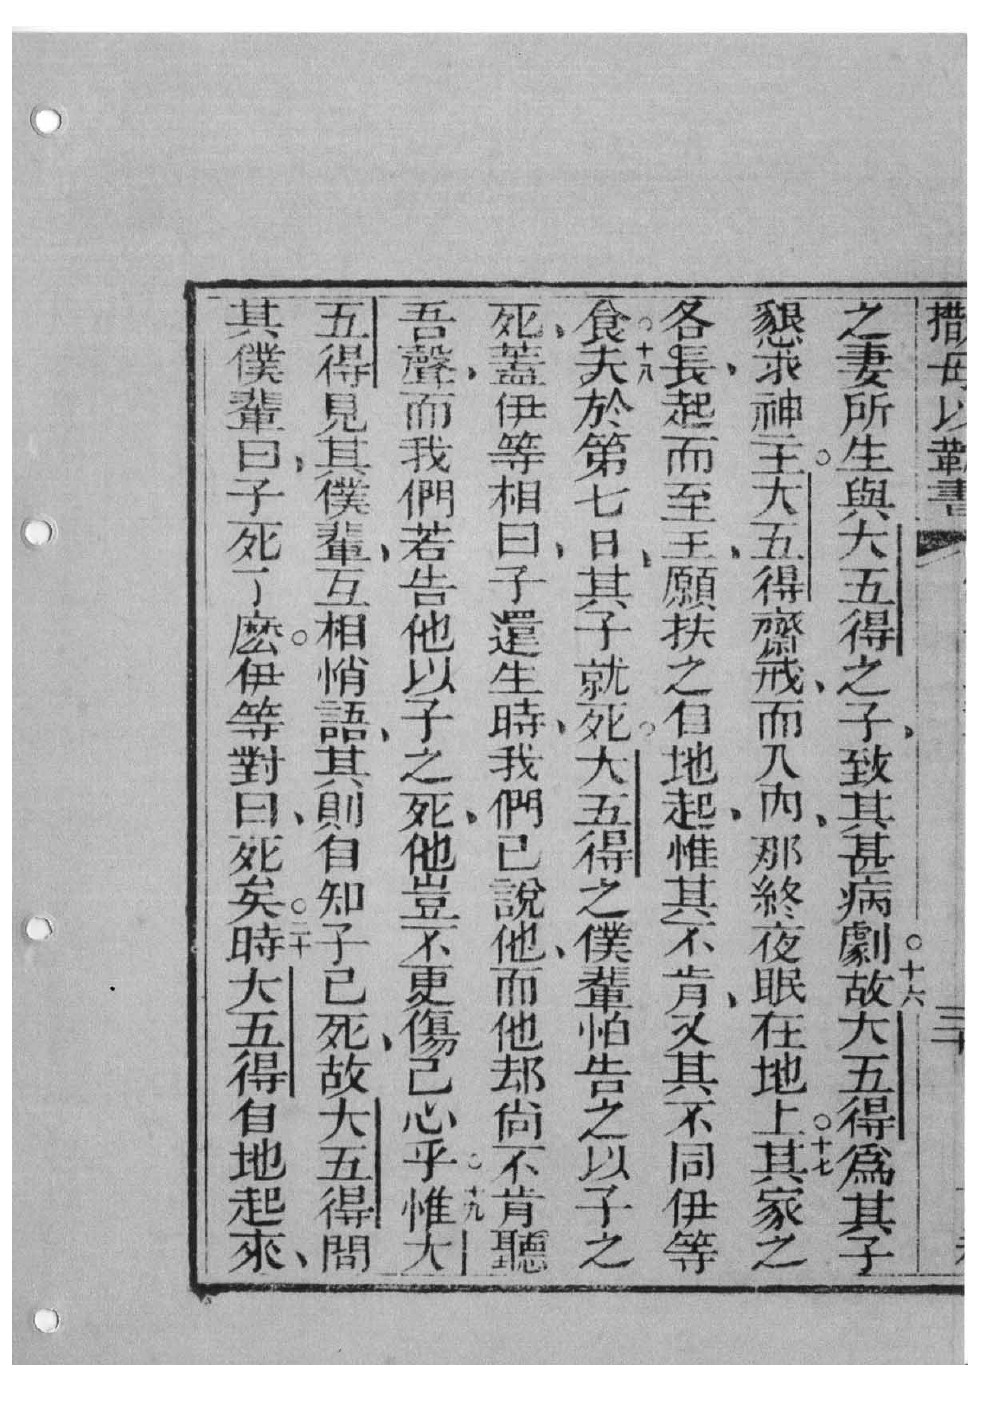 撒母以勒書
三十
之妻所生與大五得之子、致其甚病劇○十六故大五得爲其子
懇求神主○大五得齋戒、而入內、那終夜眠在地上○十七其家之
各長、起而至王、願扶之自地起、惟其不肯、又其不同伊等
食○十八夫於第七日、其子就死○大五得之僕輩怕告之以子之
死、蓋伊等相曰、子還生時、我們已說他、而他却尚不肯聽
吾聲、而我們若告他以子之死、他豈不更傷己心乎○十九惟大
五得見其僕輩、互相悄語、其則自知子已死、故大五得問
其僕輩曰、子死了麽○伊等對曰、死矣○二十時大五得自地起來、